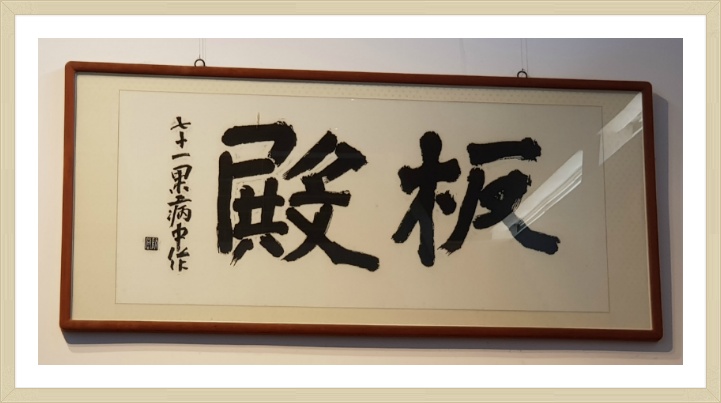 板殿
七十一果病中作